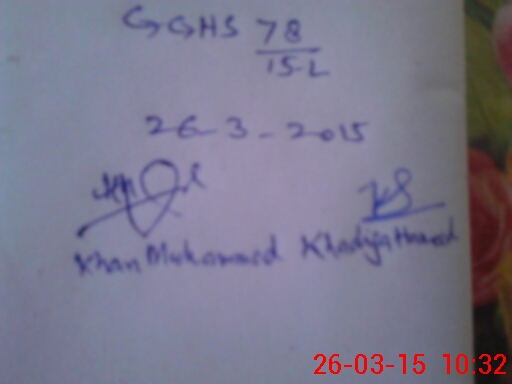 GGHS 78/15-L
26-3-2015
Khan Muhammad Khadija
26-03-15 10:32